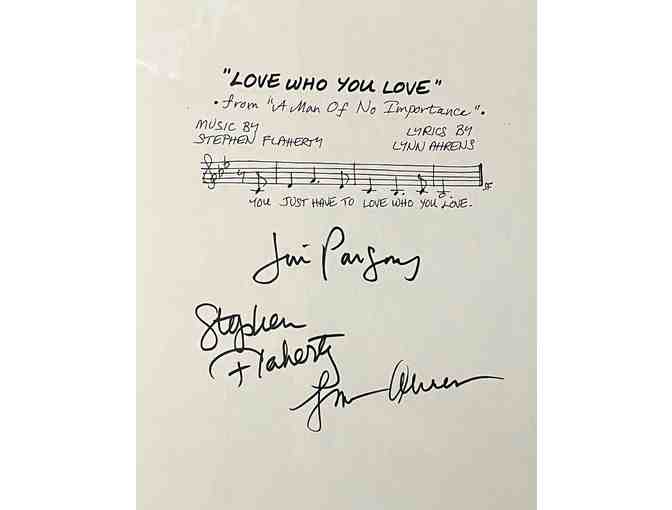 "LOVE WHO YOU LOVE"
• from "A Man Of No Importance".
MUSIC BY
STEPHEN FLAHERTY
LYRICS BY
LYNN AHRENS
YOU JUST HAVE TO LOVE WHO YOU LOVE.
SF
Jim Parsons
Stephen
Flaherty
Lynn Ahrens